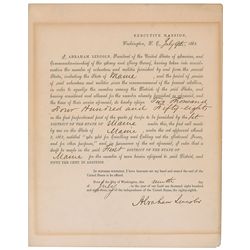 EXECUTIVE MANSION,
Washington, D. C. July 9th, 1863.
I, ABRAHAM LINCOLN, President of the United States of America, and
Commander-in-chief of the Army and Navy thereof, having taken into consideration
the number of volunteers and militia furnished by and from the several
States, including the State of Maine, and the period of service
of said volunteers and militia since the commencement of the present rebellion,
in order to equalize the numbers among the Districts of the said States, and
having considered and allowed for the number already furnished as aforesaid, and
the time of their service aforesaid, do hereby assign Two thousand
Four Hundred and Fifty eight
as the first proportional part of the quota of troops to be furnished by the 1st
DISTRICT OF THE STATE OF Maine under this, the first call made by me
on the State of Maine, under the act approved March
3, 1863, entitled "An Act for Enrolling and Calling out the National Forces, and
for other purposes," and, in pursuance of the act aforesaid, I order that a
draft be made in the said First DISTRICT OF THE STATE OF
Maine for the number of men herein assigned to said District, and
FIFTY PER CENT. IN ADDITION.
IN WITNESS WHEREOF, I have hereunto set my hand and caused the seal of the
United States to be affixed.
Done at the City of Washington, this ninth day of
July, in the year of our Lord one thousand eight hundred
and sixty-three, and of the independence of the United States, the eighty-eighth.
Abraham Lincoln